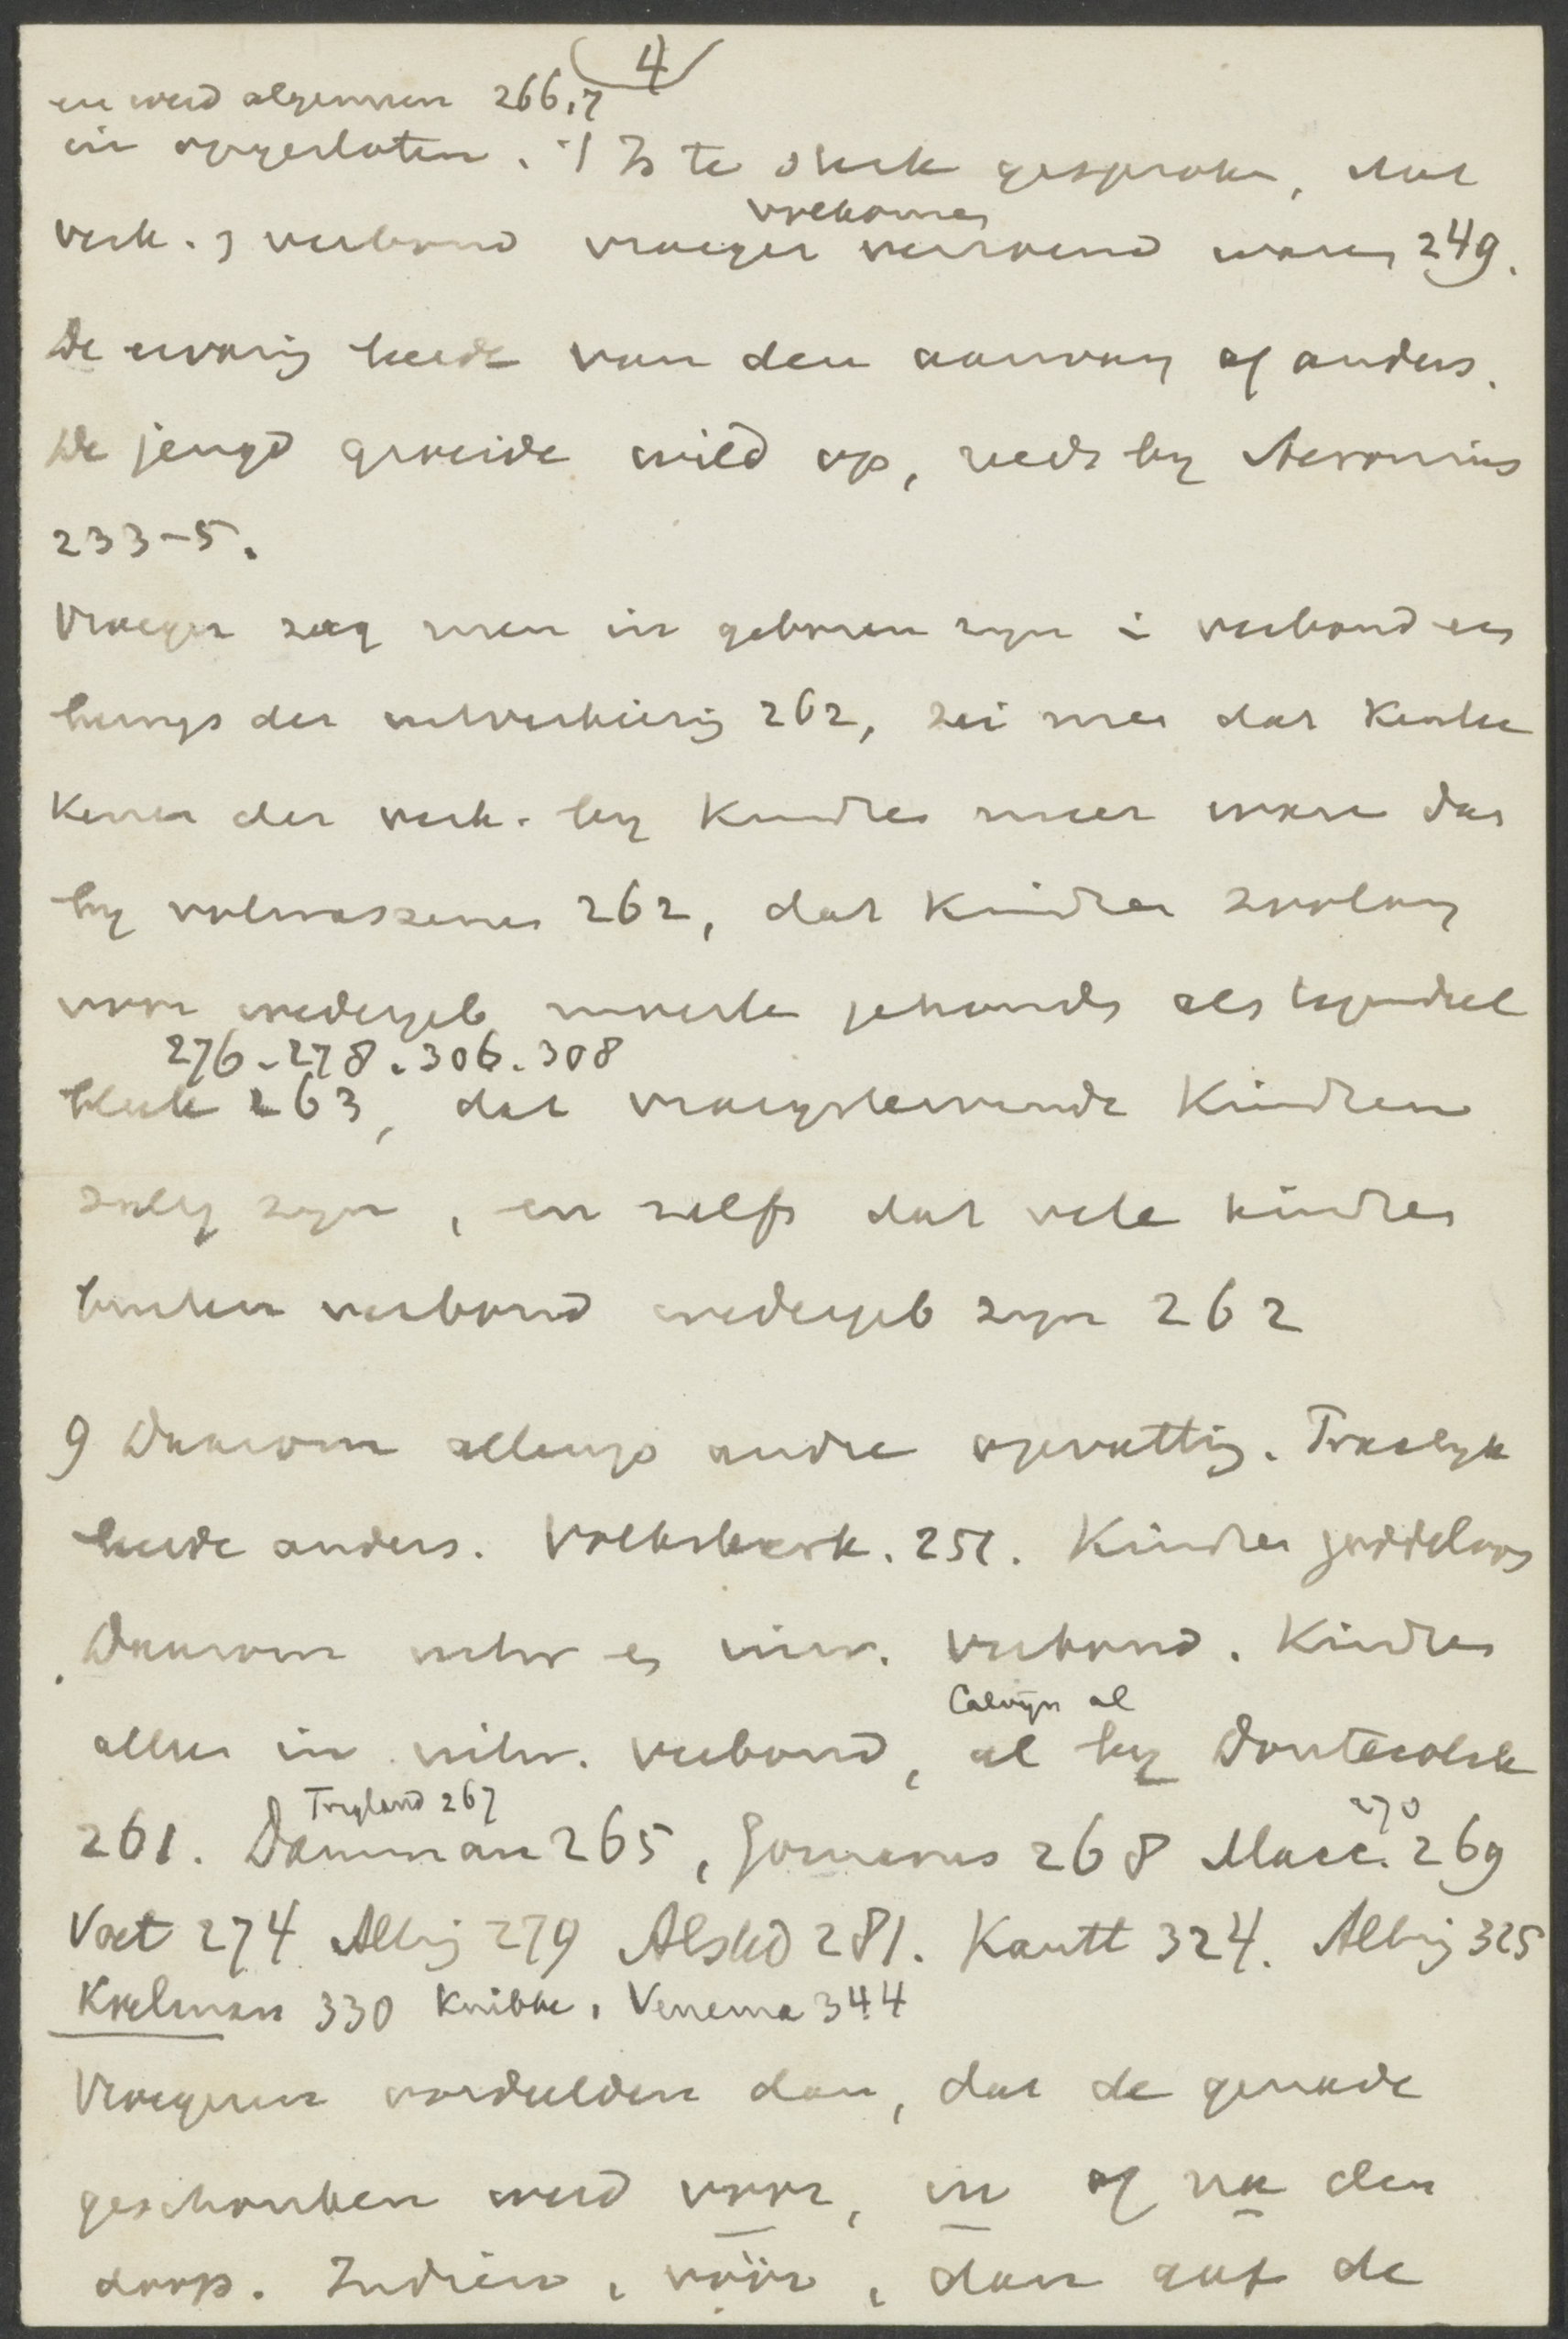 4
en werd algemeen 266,7
in opgesloten. 't Is te sterk gesproken, dat
verk. & verbond vroeger volkomen verzoend waren 249.
De ervaring leerde van den aanvang af anders.
De jeugd groeide wild op, reeds by Acronius
233-5.
Vroeger zag men in geboren zyn i verbond een
bewys der uitverkiezing 262, zei men dat Kentee
kenen der verk. by Kinderen meer waren dan
by volwassenen 262, dat Kinderen zoolang
voor wedergeb moesten gehouden als tegendeel
276-278.306.308
bleek 263, dat vroegstervende Kinderen
zalig zyn, en zelfs dat vele kinderen
buiten verbond wedergeb zyn 262
9 Daarom allengs andre opvatting. Practyk
leerde anders. Volkskerk. 251. Kinderen goddeloos
Daarom uitw en inw. verbond. Kinderen
Calvyn al
alleen in uitw. verbond, al by Donteclock
Trigland 267 270
261. Damman 265, Gomarus 268 Macc. 269
Voet 274 Alting 279 Alsted 281. Alting 325
Koelman 330 Knibbe, Venema 344
Vroegeren oordeelden dan, dat de genade
geschonken werd voor, in of na den
doop. Indien, vóór, dan gaf de